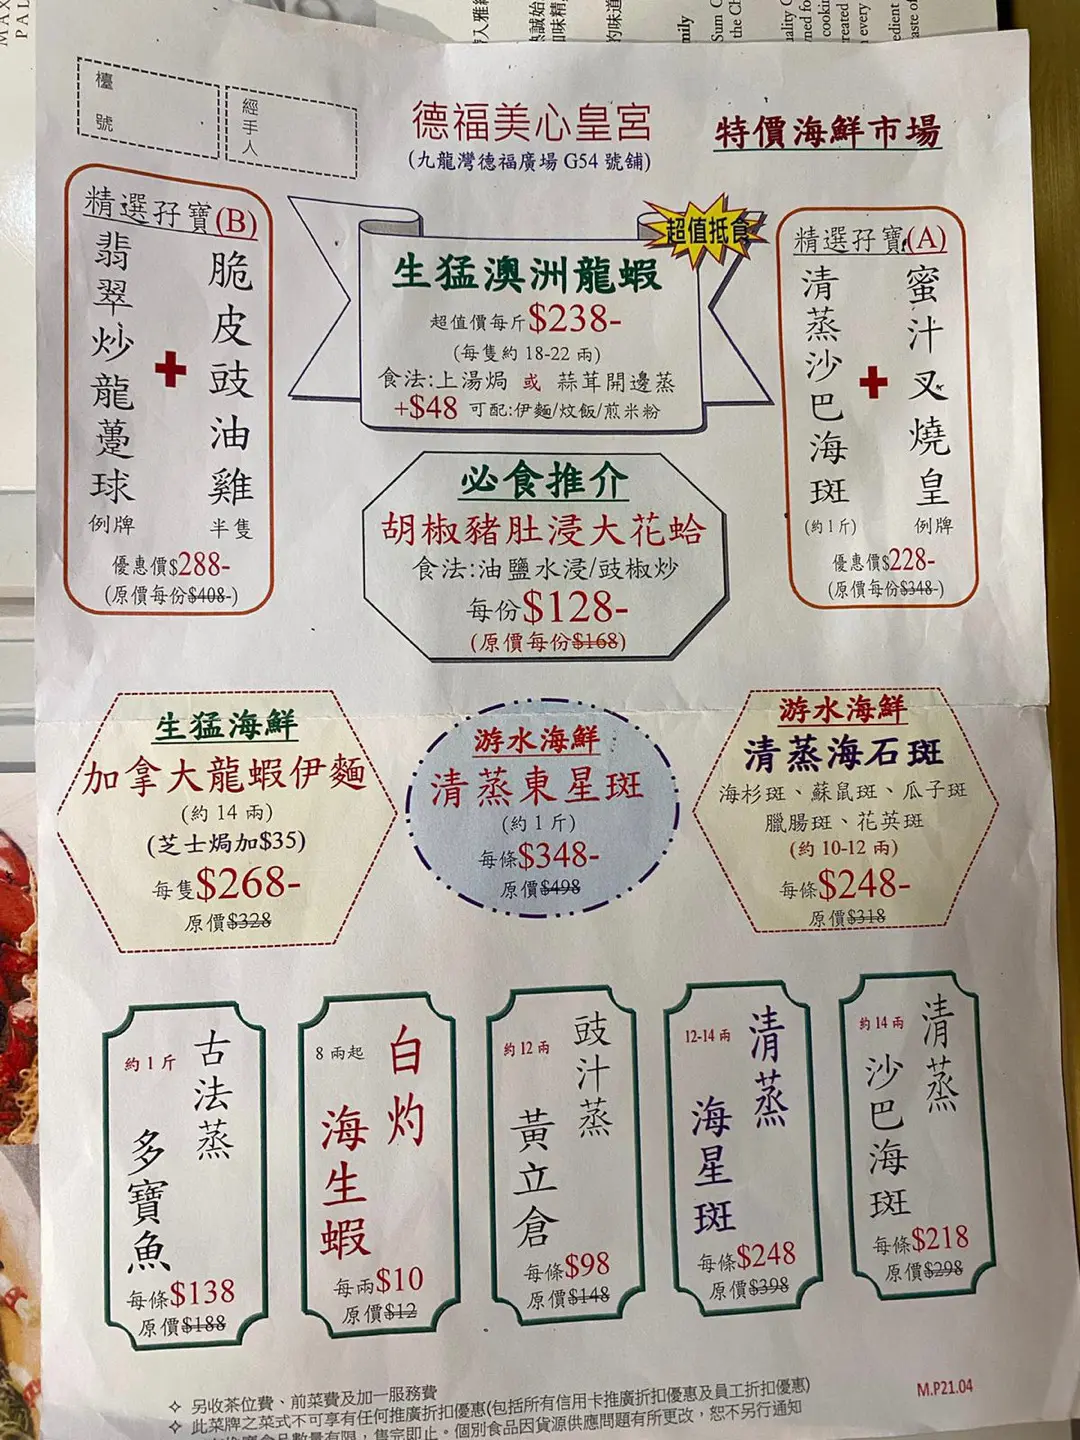 檯號
經手人
德福美心皇宮
(九龍灣德福廣場 G54 號舖)
特價海鮮市場
精選孖寶(B)
脆皮豉油雞
半隻
+
翡翠炒龍躉球
例牌
優惠價$288-
(原價每份$408-)
超值抵食
生猛澳洲龍蝦
超值價每斤$238-
(每隻約 18-22 兩)
食法:上湯焗 或 蒜茸開邊蒸
+$48 可配:伊麵/炆飯/煎米粉
精選孖寶(A)
蜜汁叉燒皇
例牌
+
清蒸沙巴海斑
(約1斤)
優惠價$228-
(原價每份$348-)
必食推介
胡椒豬肚浸大花蛤
食法:油鹽水浸/豉椒炒
每份$128-
(原價每份$168)
生猛海鮮
加拿大龍蝦伊麵
(約 14 兩)
(芝士焗加$35)
每隻$268-
原價$328
游水海鮮
清蒸東星斑
(約 1 斤)
每條$348-
原價$498
游水海鮮
清蒸海石斑
海杉斑、蘇鼠斑、瓜子斑
臘腸斑、花英斑
(約 10-12 兩)
每條$248-
原價$318
約 1 斤
古法蒸
多寶魚
每條$138
原價$188
8 兩起
白灼
海生蝦
每兩$10
原價$12
約 12 兩
豉汁蒸
黃立倉
每條$98
原價$148
12-14 兩
清蒸
海星斑
每條$248
原價$398
約 14 兩
清蒸
沙巴海斑
每條$218
原價$298
✧ 另收茶位費、前菜費及加一服務費
✧ 此菜牌之菜式不可享有任何推廣折扣優惠(包括所有信用卡推廣折扣優惠及員工折扣優惠)
售完即止。個別食品因貨源供應問題有所更改，恕不另行通知
M.P21.04